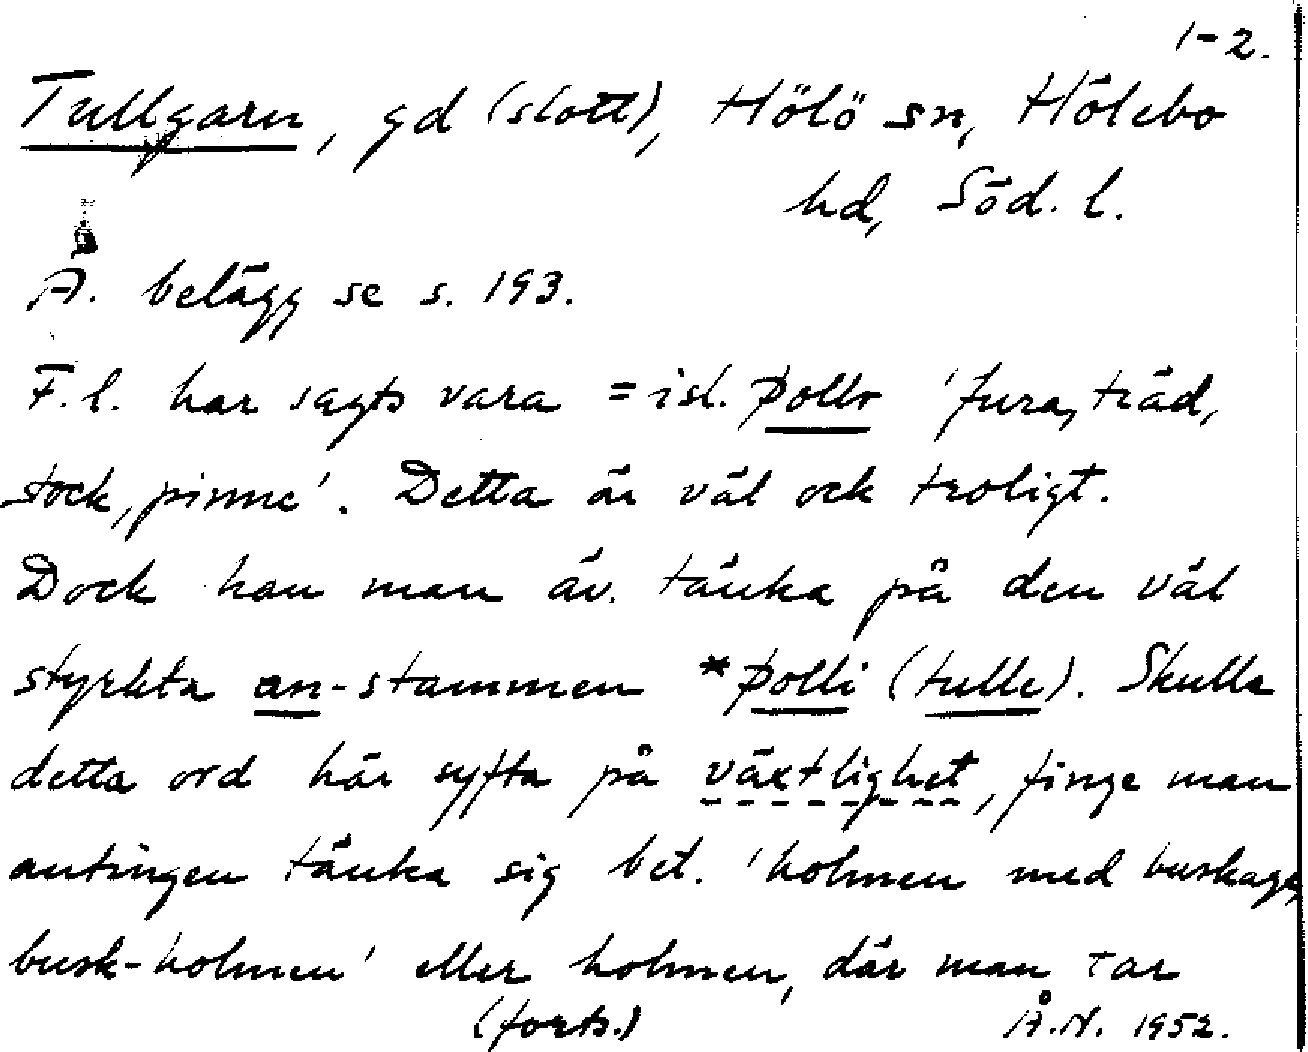 1-2.
Tullgarn, gd (slott), Hölö sn, Hölebo
hd, Söd. l.
Ä. belägg se s. 193.
F.l. har sagts vara = isl. þollr 'fura, träd,
stock, pinne'. Detta är väl ock troligt.
Dock kan man äv. tänka på den väl
styrkta an-stammen *þolli (tulle). Skulle
detta ord här syfta på växtlighet, finge man
antingen tänka sig bet. 'holmen med buskage,
busk-holmen' eller holmen, där man tar
(forts.) Å.N. 1952.